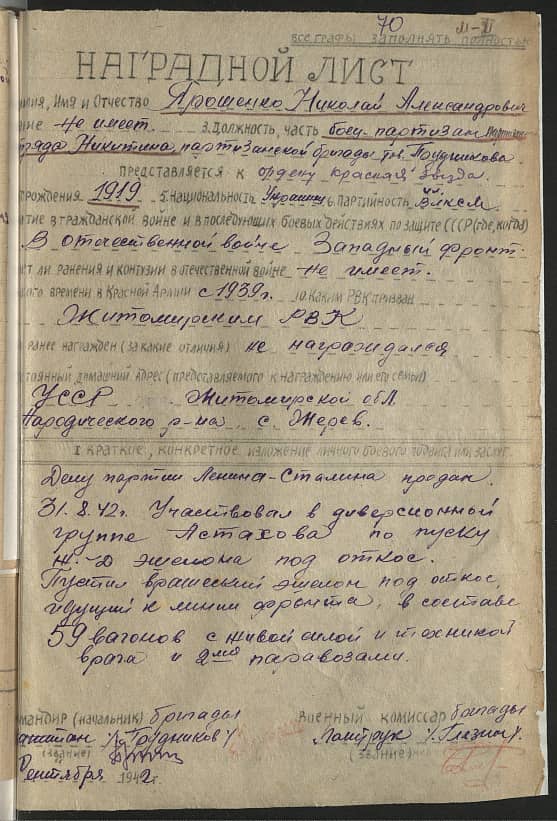 70
все графы заполнять полностью
НАГРАДНОЙ ЛИСТ
илия, Имя и Отчество Ярошенко Николай Александрович
ние не имеет. 3. Должность, часть боец-партизан
тряда Никитина партизанской бригады тов. Прудникова.
представляется к ордену красная звезда.
рождения 1919 5. Национальность Украинец 6. Партийность чл. ВЛКСМ
тие в гражданской войне и в последующих боевых действиях по защите СССР (где, когда)
В отечественной войне Западный фронт.
ет ли ранения и контузии в отечественной войне не имеет.
кого времени в Красной Армии с 1939г. 10. Каким РВК призван
Житомирским РВК
ранее награжден (за какие отличия) не награждался
стоянный домашний адрес (представляемого к награждению или его семьи)
УССР Житомирской обл.
Народического р-на с. Жерев.
I краткие, конкретное изложение личного боевого подвига или заслуг.
Делу партии Ленина-Сталина предан.
31.8.42г. Участвовал в диверсионной
группе Астахова по пуску
ж.-д эшелона под откос.
Пустил вражеский эшелон под откос,
идущий к линии фронта, в составе
59 вагонов с живой силой и техникой
врага и 2мя паравозами.
мандир (начальник) бригады
Военный комиссар бригады
апитан /Прудников/
(звание)
(звание)
ентября 1942